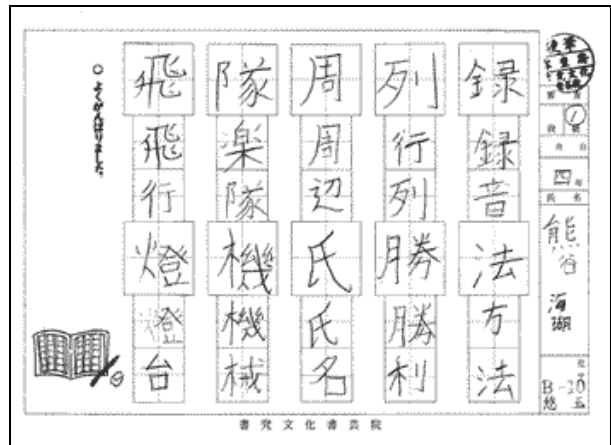 録録音法方法
列行列勝勝利
周周辺氏氏名
隊楽隊機機械
飛飛行燈燈台
○よくがんばりました。
四年
氏名
熊谷海瑚
B-20
悠五
書究文化書芸院